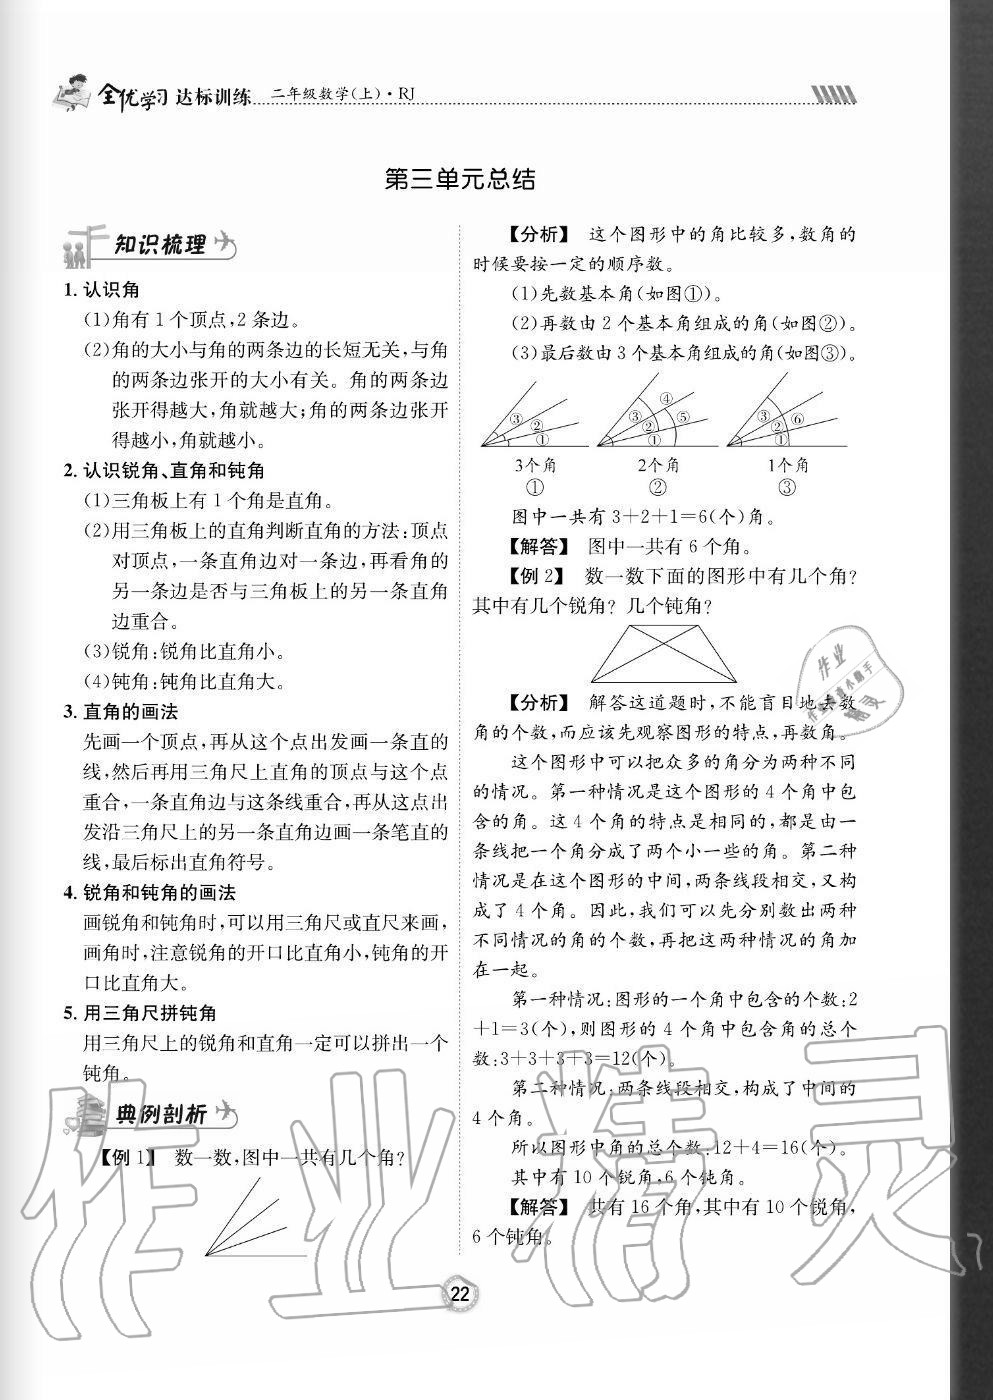 全优学习 达标训练 二年级数学(上)·RJ
第三单元总结
知识梳理
1. 认识角
(1)角有1个顶点,2条边。
(2)角的大小与角的两条边的长短无关,与角
的两条边张开的大小有关。角的两条边
张开得越大,角就越大;角的两条边张开
得越小,角就越小。
2. 认识锐角、直角和钝角
(1)三角板上有1个角是直角。
(2)用三角板上的直角判断直角的方法:顶点
对顶点,一条直角边对一条边,再看角的
另一条边是否与三角板上的另一条直角
边重合。
(3)锐角:锐角比直角小。
(4)钝角:钝角比直角大。
3. 直角的画法
先画一个顶点,再从这个点出发画一条直的
线,然后再用三角尺上直角的顶点与这个点
重合,一条直角边与这条线重合,再从这点出
发沿三角尺上的另一条直角边画一条笔直的
线,最后标出直角符号。
4. 锐角和钝角的画法
画锐角和钝角时,可以用三角尺或直尺来画,
画角时,注意锐角的开口比直角小,钝角的开
口比直角大。
5. 用三角尺拼钝角
用三角尺上的锐角和直角一定可以拼出一个
钝角。
典例剖析
【例1】 数一数,图中一共有几个角?
【分析】 这个图形中的角比较多,数角的
时候要按一定的顺序数。
(1)先数基本角(如图①)。
(2)再数由2个基本角组成的角(如图②)。
(3)最后数由3个基本角组成的角(如图③)。
③ ② ① ③ ② ① ④ ⑤ ③ ② ① ⑥
3个角 2个角 1个角
① ② ③
图中一共有3+2+1=6(个)角。
【解答】 图中一共有6个角。
【例2】 数一数下面的图形中有几个角?
其中有几个锐角?几个钝角?
【分析】 解答这道题时,不能盲目地去数
角的个数,而应该先观察图形的特点,再数角。
这个图形中可以把众多的角分为两种不同
的情况。第一种情况是这个图形的4个角中包
含的角。这4个角的特点是相同的,都是由一
条线把一个角分成了两个小一些的角。第二种
情况是在这个图形的中间,两条线段相交,又构
成了4个角。因此,我们可以先分别数出两种
不同情况的角的个数,再把这两种情况的角加
在一起。
第一种情况:图形的一个角中包含的个数:2
+1=3(个),则图形的4个角中包含角的总个
数:3+3+3+3=12(个)。
第二种情况:两条线段相交,构成了中间的
4个角。
所以图形中角的总个数:12+4=16(个)。
其中有10个锐角,6个钝角。
【解答】 共有16个角,其中有10个锐角,
6个钝角。
22
作业精灵
作业
精灵